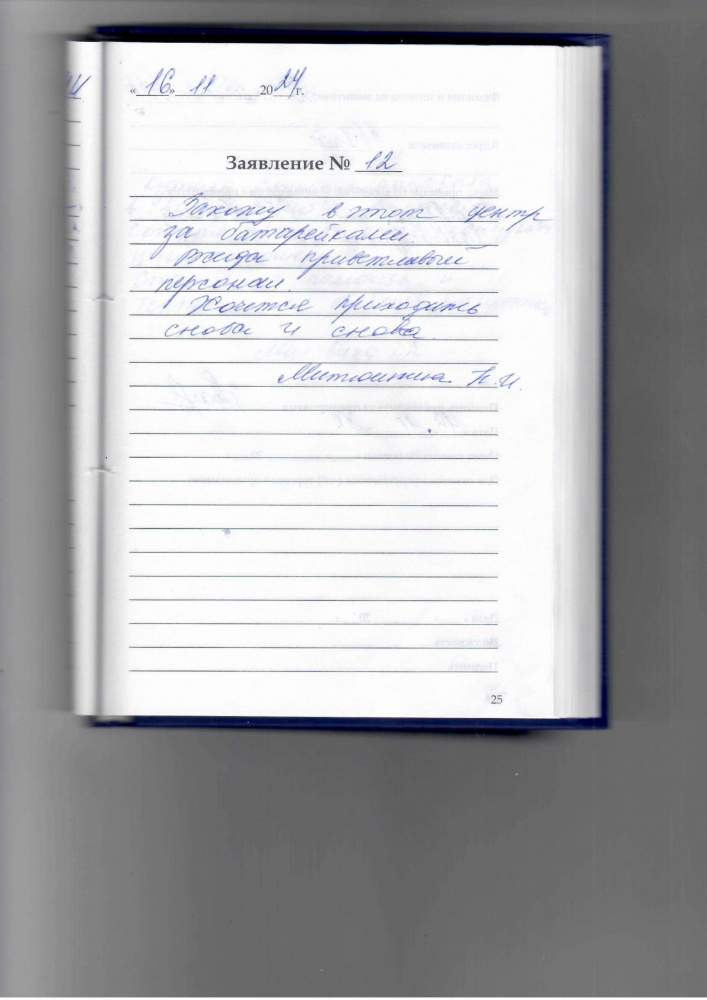 «16» 11 2024г.
Заявление № 12
Захожу в этот центр
за батарейками.
Всегда приветливый
персонал.
Хочется приходить
снова и снова.
Н.И.
25